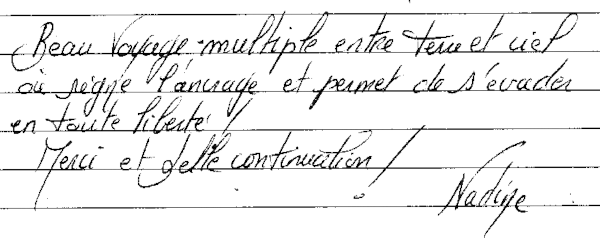 Beau Voyage multiple entre terre et ciel
où règne l'ancrage et permet de s'évader
en toute liberté !
Merci et belle continuation !
Nadine